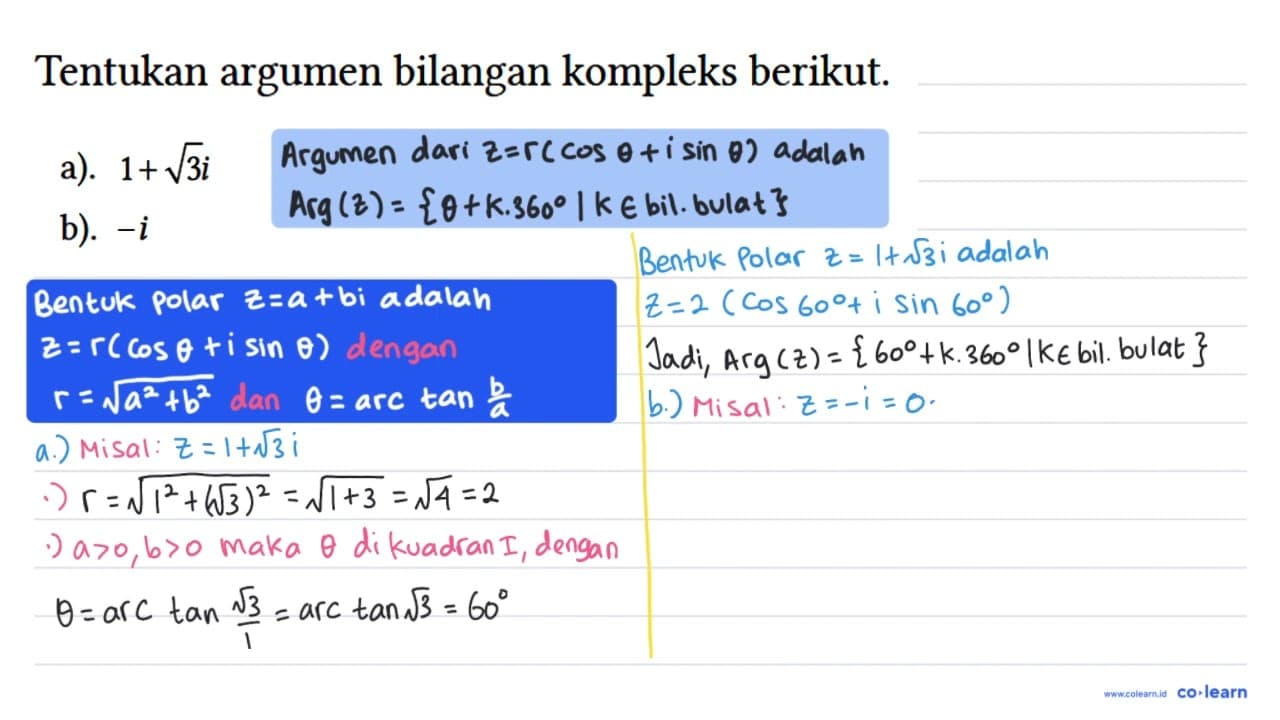 Tentukan argumen bilangan kompleks berikut.
a). 1+√3i
b). −i
Argumen dari z=r(cos θ+i sin θ) adalah
Arg(z)={θ+k.360° | k ∈ bil. bulat}
Bentuk Polar z=a+bi adalah
z=r(cos θ+i sin θ) dengan
r=√(a²+b²) dan θ=arc tan b/a
a.) Misal: z=1+√3i
·) r=√(1²+(√3)²)=√(1+3)=√4=2
·) a>0, b>0 maka θ di kuadran I, dengan
θ=arc tan √3/1=arc tan √3=60°
Bentuk Polar z=1+√3i adalah
z=2(cos 60°+i sin 60°)
Jadi, Arg(z)={60°+k.360° | k ∈ bil. bulat}
b.) Misal: z=−i=0·
www.colearn.id co·learn